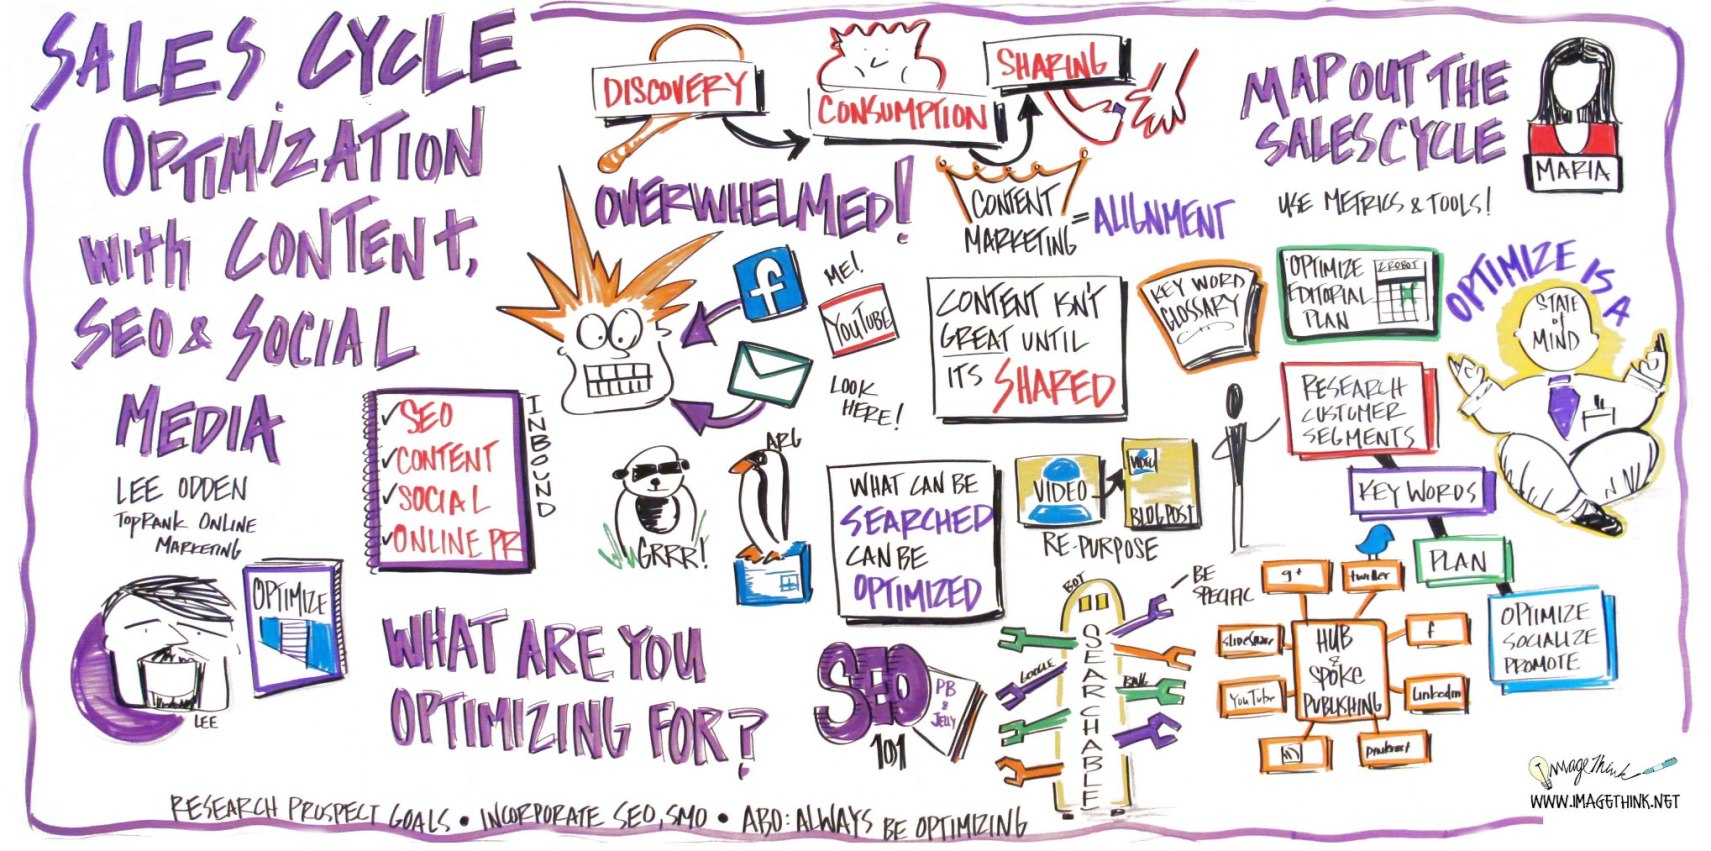 SALES CYCLE
OPTIMIZATION
with CONTENT,
SEO & SOCIAL
MEDIA
LEE ODDEN
TOPRANK ONLINE
MARKETING
LEE
OPTIMIZE
DISCOVERY
CONSUMPTION
SHARING
OVERWHELMED!
CONTENT
MARKETING
= ALIGNMENT
MAP OUT THE
SALES CYCLE
USE METRICS & TOOLS!
MARIA
✓SEO
✓CONTENT
✓SOCIAL
✓ONLINE PR
INBOUND
f
ME!
YOUTUBE
LOOK
HERE!
CONTENT ISN'T
GREAT UNTIL
ITS SHARED
KEY WORD
GLOSSARY
OPTIMIZE
EDITORIAL
PLAN
OPTIMIZE IS A
STATE
of
MIND
RESEARCH
CUSTOMER
SEGMENTS
KEY WORDS
PLAN
OPTIMIZE
SOCIALIZE
PROMOTE
GRRR!
ARG
WHAT CAN BE
SEARCHED
CAN BE
OPTIMIZED
VIDEO
VIDEO
BLOG POST
RE-PURPOSE
WHAT ARE YOU
OPTIMIZING FOR?
SEO
101
PB
&
JELLY
BOT
SEARCHABLE
BE
SPECIFIC
GOOGLE
BING
HUB
&
SPOKE
PUBLISHING
g+
twitter
SlideShare
f
YouTube
Linkedin
pinterest
RESEARCH PROSPECT GOALS • INCORPORATE SEO, SMO • ABO: ALWAYS BE OPTIMIZING
ImageThink
WWW.IMAGETHINK.NET